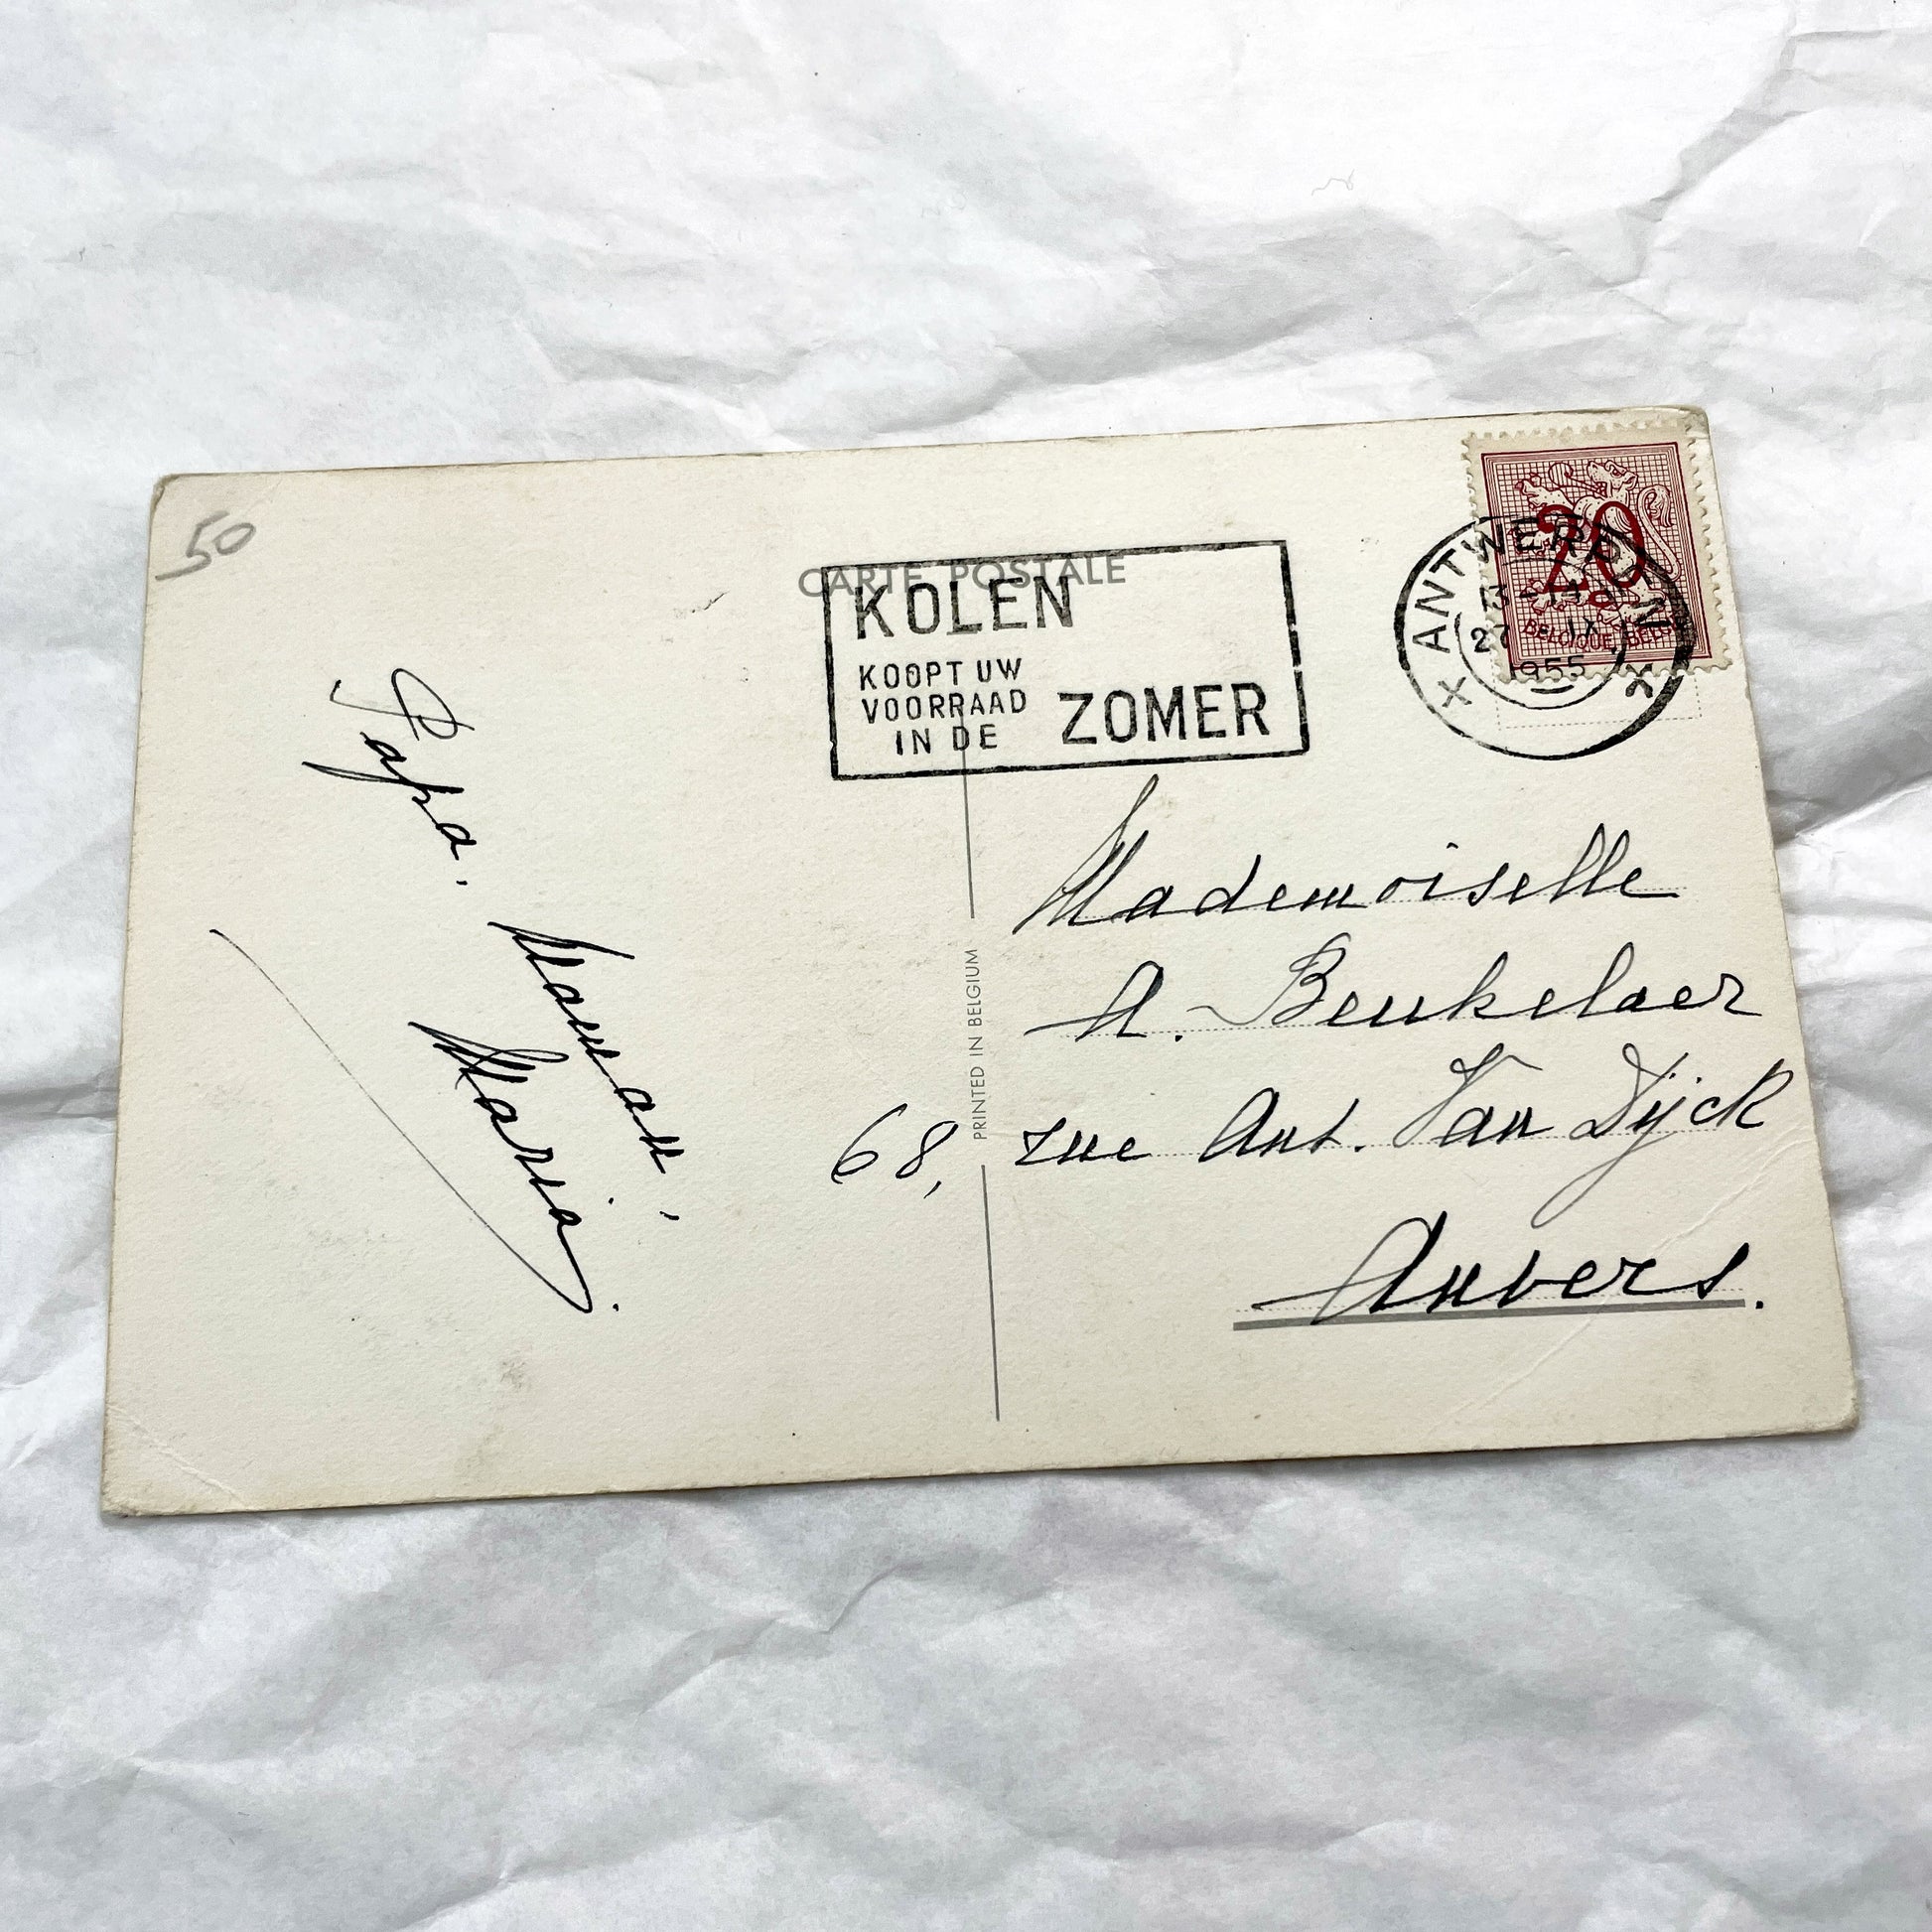 50
CARTE POSTALE
KOLEN
KOOPT UW
VOORRAAD
IN DE
ZOMER
ANTWERPEN
27 IX
1955
20
BELGIQUE BELGIE
Papa.
Maman,
Maria.
PRINTED IN BELGIUM
Mademoiselle
A. Beukelaer
68, rue Ant. Van Dyck
Anvers.